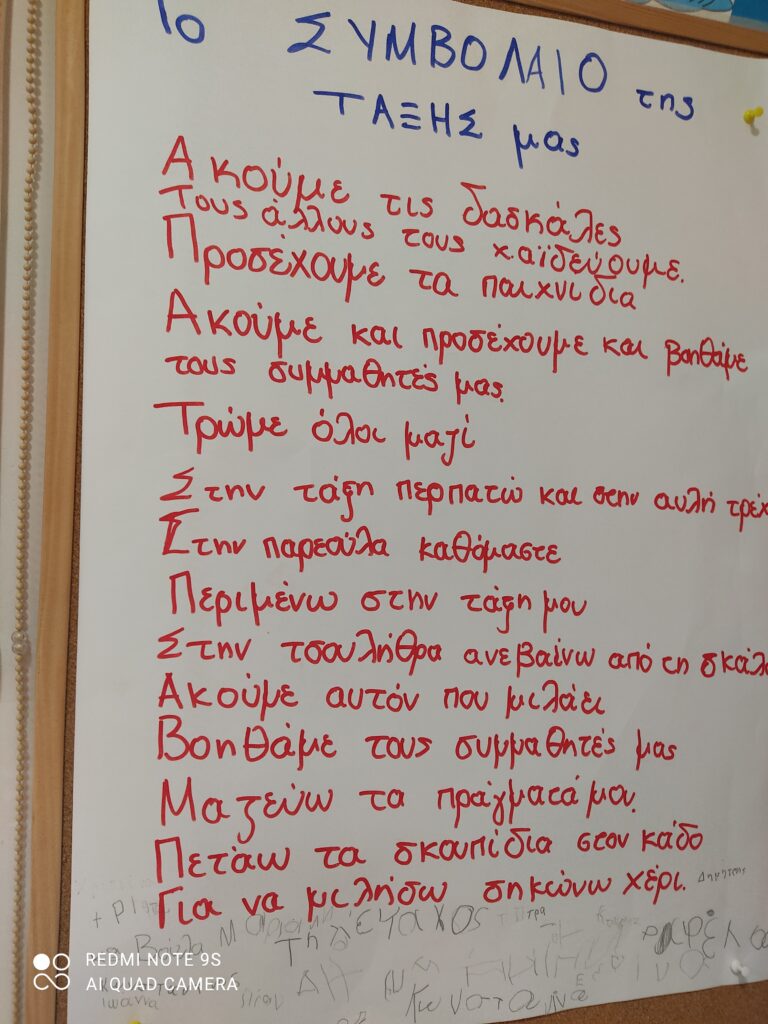 Το ΣΥΜΒΟΛΑΙΟ της
ΤΑΞΗΣ μας
Ακούμε τις δασκάλες
Τους άλλους τους χαϊδεύουμε.
Προσέχουμε τα παιχνίδια
Ακούμε και προσέχουμε και βοηθάμε
τους συμμαθητές μας.
Τρώμε όλοι μαζί
Στην τάξη περπατώ και στην αυλή τρέχ
Στην παρεούλα καθόμαστε
Περιμένω στην τάξη μου
Στην τσουλήθρα ανεβαίνω από τη σκάλα
Ακούμε αυτόν που μιλάει
Βοηθάμε τους συμμαθητές μας
Μαζεύω τα πράγματά μου.
Πετάω τα σκουπίδια στον κάδο
Για να μιλήσω σηκώνω χέρι.
REDMI NOTE 9S
AI QUAD CAMERA